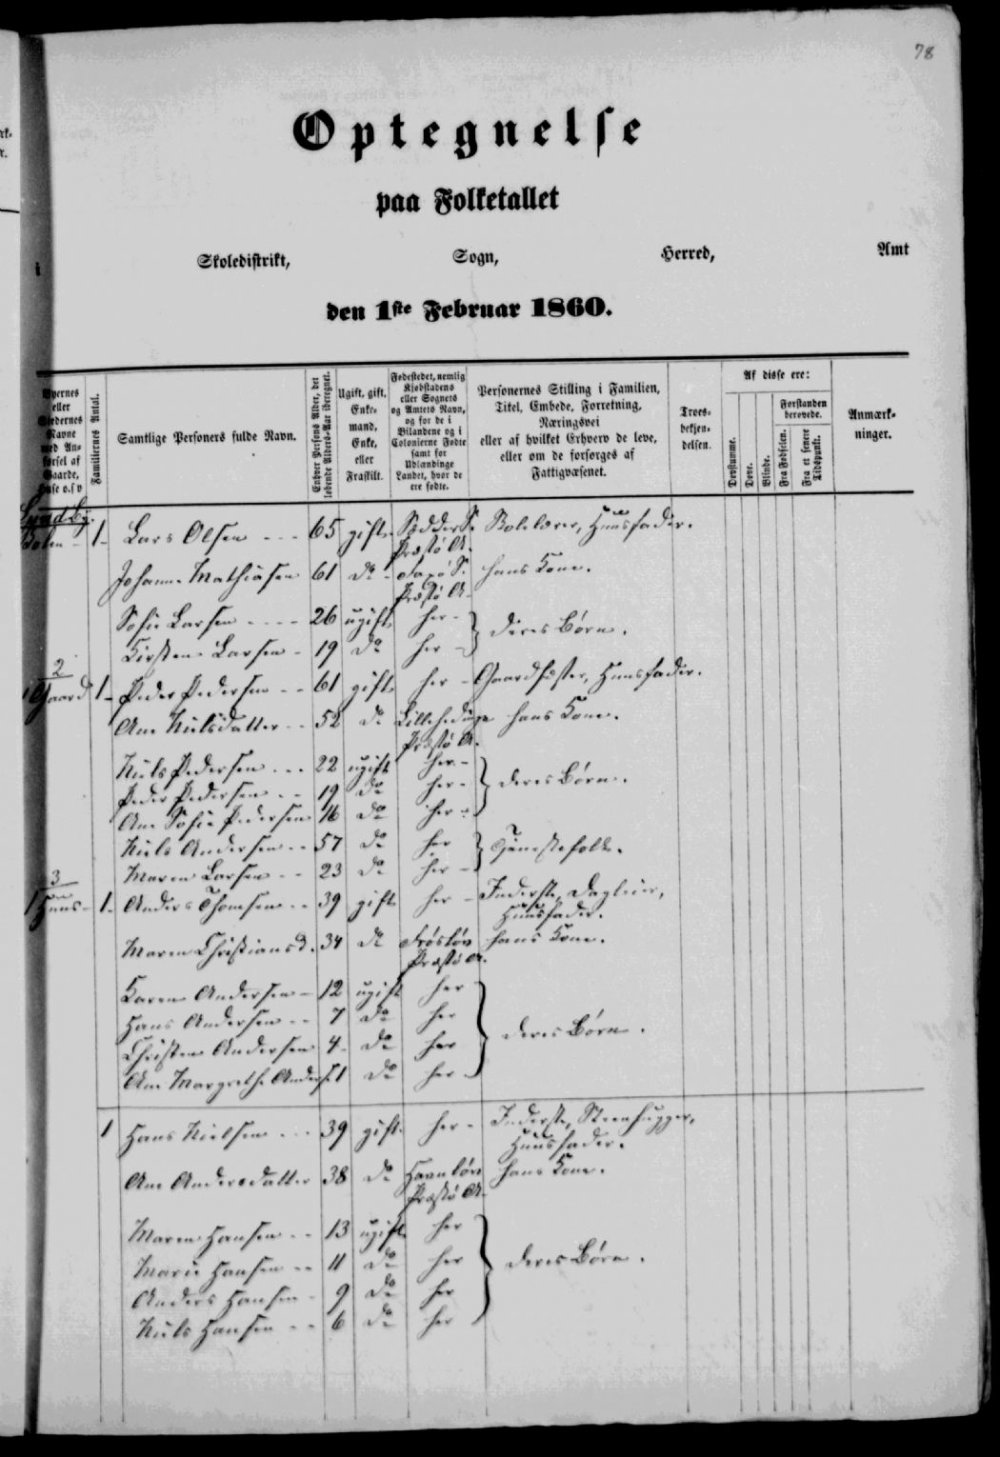 78
Optegnelse
paa Folketallet
Skoledistrikt, Sogn, Herred, Amt
den 1ste Februar 1860.
Familiernes Antal.
Samtlige Personers fulde Navn.
Enhver Persons Alder, det løbende Alders-Aar iberegnet.
Ugift, gift, Enke- mand, Enke, eller Fraskilt.
Fødestedet, nemlig Kjøbstadens eller Sognets og Amtets Navn, og for de i Bilandene og i Colonierne Fødte samt for Udlændinge Landet, hvor de ere fødte.
Personernes Stilling i Familien, Titel, Embede, Forretning, Næringsvei eller af hvilket Erhverv de leve, eller om de forsørges af Fattigvæsenet.
Troes- bekjen- delsen.
Af disse ere:
Døvstumme.
Døve.
Blinde.
Forstanden berøvede.
Fra Fødselen.
Fra et senere Tidspunkt.
Anmærk- ninger.
Lund By.
1 Lars Olsen 65 gift Skolelærer, Huusfader.
Præstø A.
Johanne Mathiasen 61 do Faxø S. hans Kone.
Præstø A.
Sofie Larsen 26 ugift her
deres Børn.
Kirsten Larsen 19 do her
2
Gaard 1 Peder Pedersen 61 gift her Gaardfæster, Huusfader.
Ane Nielsdatter 52 do Lillehedinge hans Kone.
Præstø A.
Niels Pedersen 22 ugift her
Peder Pedersen 19 do her deres Børn.
Ane Sofie Pedersen 16 do her
Niels Andersen 57 do her Tjenestefolk.
Maren Larsen 23 do her
3
1 Huus 1 Anders Thomsen 39 gift her Inderste, Dagleier,
Huusfader.
Maren Christiansd. 34 do hans Kone.
Præstø A.
Karen Andersen 12 ugift her
Hans Andersen 7 do her
deres Børn.
Christen Andersen 4 do her
Ane Margrethe Anders. 1 do her
1 Hans Nielsen 39 gift her Inderste, Steenhugger,
Huusfader.
Ane Andersdatter 38 do hans Kone.
Præstø A.
Maren Hansen 13 ugift her
Marie Hansen 11 do her deres Børn.
Anders Hansen 9 do her
Niels Hansen 6 do her